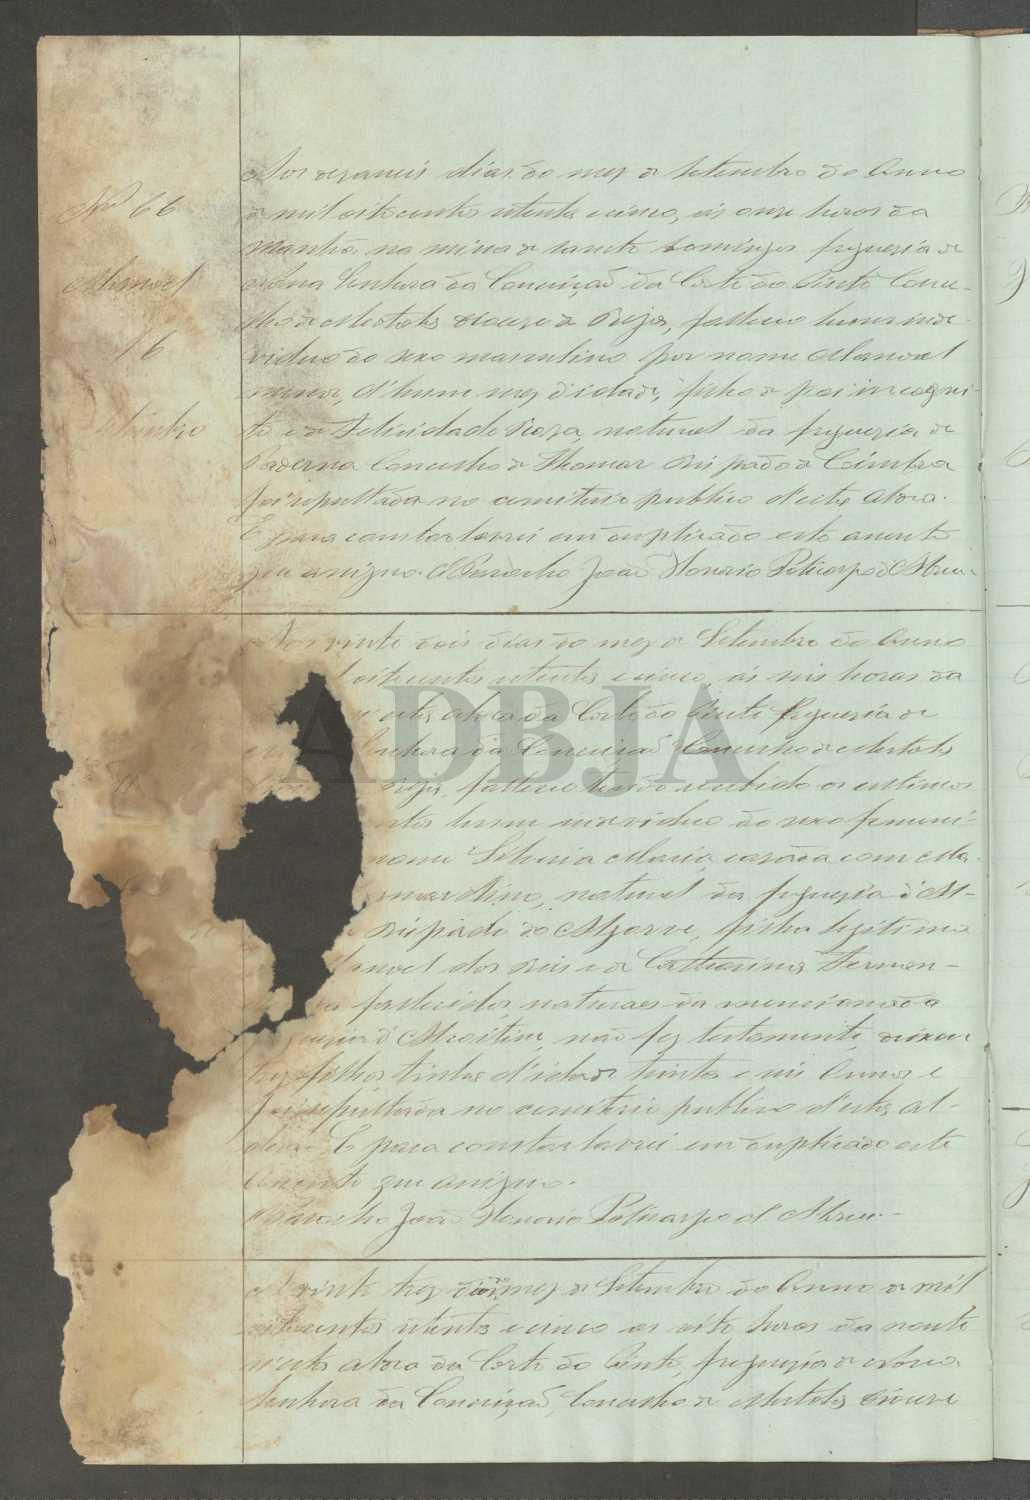 Nº 66
Manoel
16
Setembro
Aos dezaseis dias do mez de Setembro do Anno
de mil oitocentos setenta e cinco, ás onze horas da
manhã, na mina de Saneto Domingos freguezia de
Nossa Senhora da Conceição da Corte do Pinto Conce-
lho de Mertola diocese de Beja, falleceu hum indi-
viduo do sexo masculino por nome Manoel
menor, d'hum mez d'idade, filho de pai incogni-
to e de Felicidade Roza, natural da freguezia de
Paderna Concelho de Thomar Bispado de Coimbra
foi sepultado no cemiterio publico d'esta aldea.
E para constar lavrei em duplicado este assento
que assigno. O Parocho João Honorio Policarpo d'Abreu
Aos vinte dois dias do mez de Setembro do Anno
oitocentos setenta e cinco, ás seis horas da
n'esta aldea da Corte do Pinto freguezia de
Senhora da Conceição Concelho de Mertola
Beja, falleceu tendo recebido os ultimos
hum individuo do sexo femini-
nome Silveria Maria, casada com Ma-
natural da freguezia d'Al-
Bispado do Algarve, filha legitima
Manoel dos Reis e de Catharina Fernan-
fallecidos, naturaes da mencionada
freguezia d'Alcoitim, não fez testamento, deixou
filhos, tinha d'idade trinta e seis Annos e
foi sepultada no cemiterio publico d'esta al-
dea. E para constar lavrei em duplicado este
Assento que assigno.
O Parocho João Honorio Policarpo d'Abreu
A vinte trez dias do mez de Setembro do Anno de mil
oitocentos setenta e cinco as oito horas da noute
n'esta aldea da Corte do Pinto, freguezia de Nossa
Senhora da Conceição, Concelho de Mertola Diocese
ADBJA